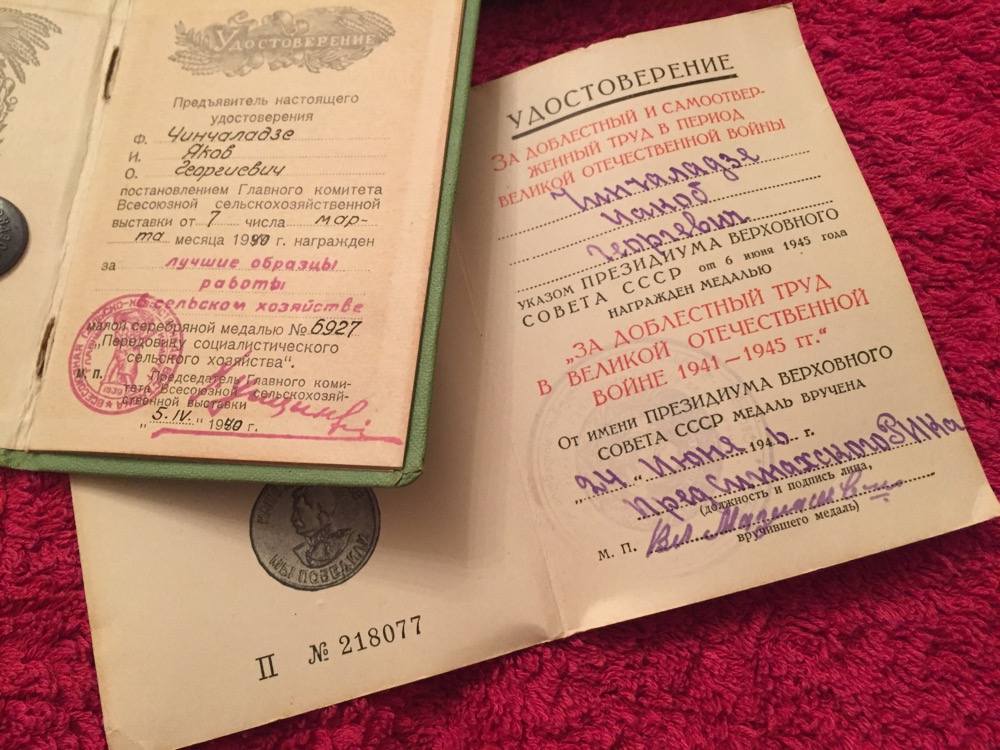 Удостоверение
Предъявитель настоящего
удостоверения
Ф. Чинчаладзе
И. Яков
О. Георгиевич
постановлением Главного комитета
Всесоюзной сельскохозяйственной
выставки от 7 числа мар-
та месяца 1940 г. награжден
за лучшие образцы
работы
в сельском хозяйстве
малой серебряной медалью № 6927
„Передовику социалистического
сельского хозяйства“.
М. П. Председатель Главного коми-
тета Всесоюзной сельскохозяй-
ственной выставки
„5.IV.“ 1940 г.
УДОСТОВЕРЕНИЕ
ЗА ДОБЛЕСТНЫЙ И САМООТВЕР-
ЖЕННЫЙ ТРУД В ПЕРИОД
ВЕЛИКОЙ ОТЕЧЕСТВЕННОЙ ВОЙНЫ
Чинчаладзе
Иакоб
Георгевич
УКАЗОМ ПРЕЗИДИУМА ВЕРХОВНОГО
СОВЕТА СССР от 6 июня 1945 года
НАГРАЖДЕН МЕДАЛЬЮ
„ЗА ДОБЛЕСТНЫЙ ТРУД
В ВЕЛИКОЙ ОТЕЧЕСТВЕННОЙ
ВОЙНЕ 1941—1945 гг.“
ОТ ИМЕНИ ПРЕЗИДИУМА ВЕРХОВНОГО
СОВЕТА СССР МЕДАЛЬ ВРУЧЕНА
„24“ Июня 1946 г.
(должность и подпись лица,
М. П. вручившего медаль)
МЫ ПОБЕДИЛИ
П № 218077